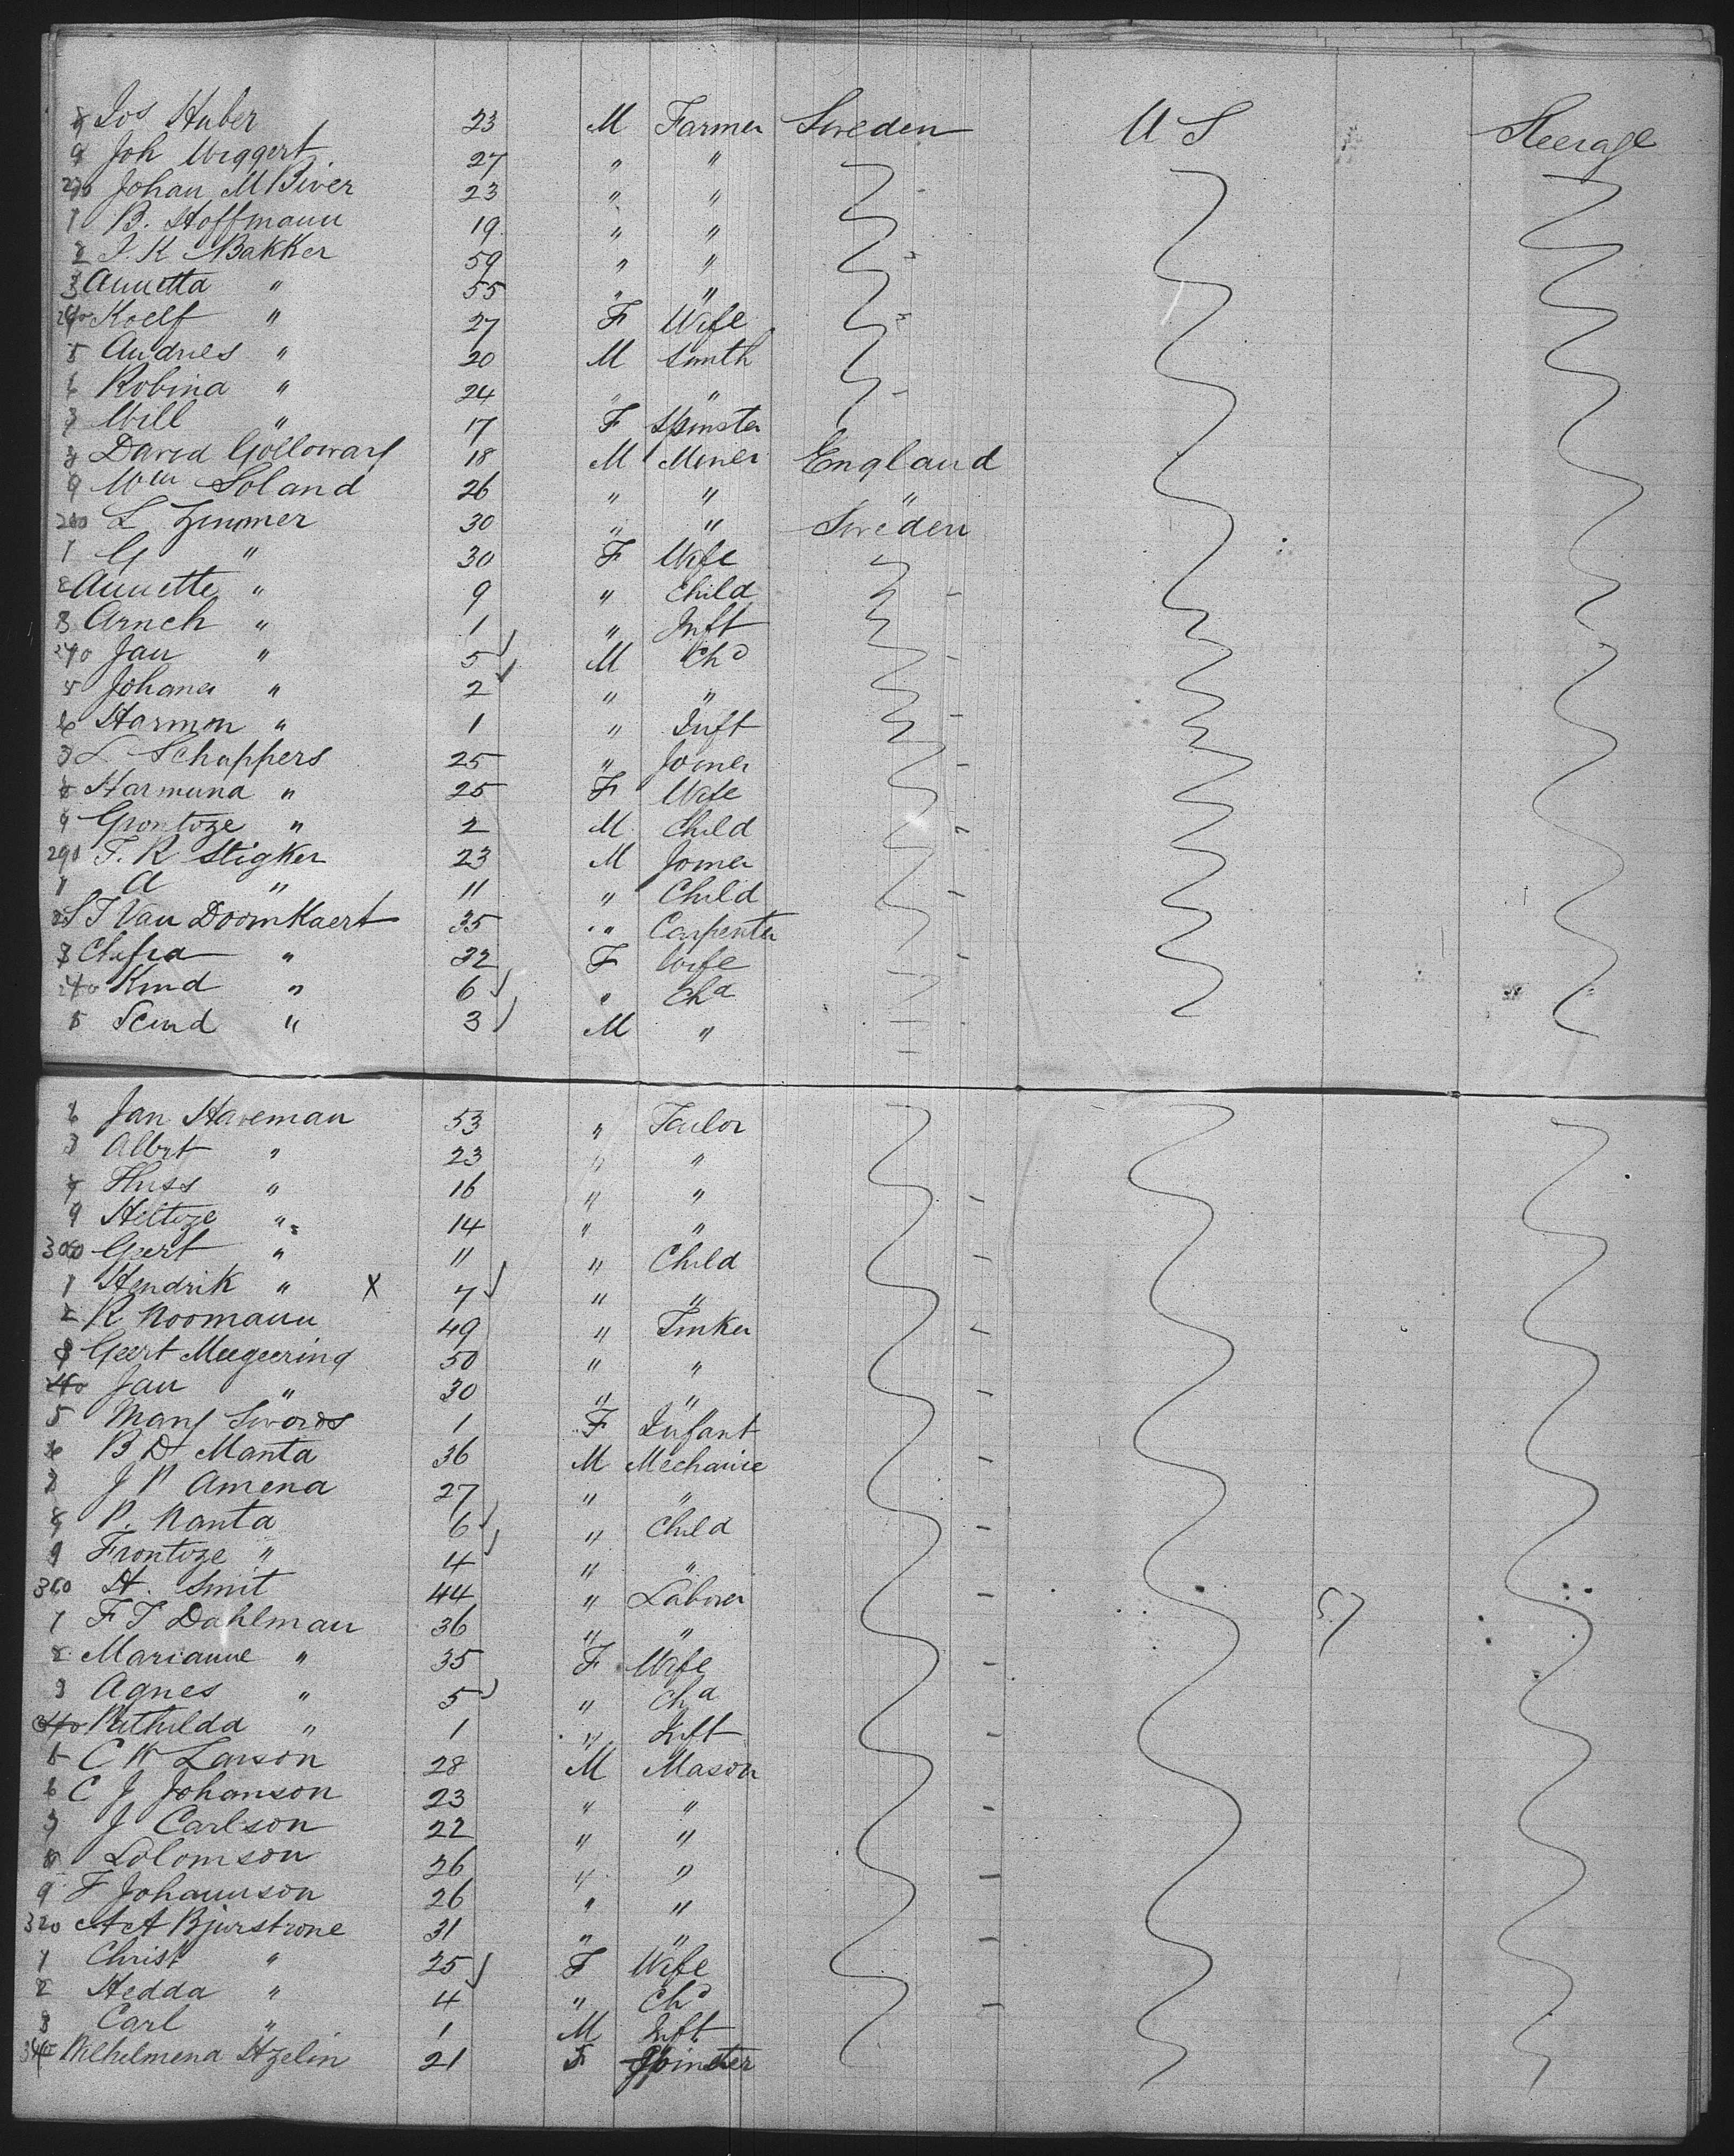 8 Jos Huber 23 M Farmer Sweden U S Steerage
9 Joh Wiggert 27 " "
Johan M Biver 23 " "
1 B. Hoffmann 19 " "
2 J. K Bakker 59 " "
3 Annetta " 55 " "
Roelf " 27 F Wife
5 Andries " 20 M Smith
6 Robina " 24 " "
7 Will " 17 F Spinster
8 David Golloway 18 M Miner England
9 Wm Soland 26 " " "
L Zimmer 30 " " Sweden
1 G " 30 F Wife
2 Annette " 9 " Child
3 Arnch " 1 " Inft
Jan " 5 M Chd
5 Johanes " 2 " "
6 Harmon " 1 " Inft
7 L Schuppers 25 " Joiner
8 Harmuna " 25 F Wife
9 Grontoze " 2 M Child
290 F. R Stigker 23 M Joiner
1 A " 11 " Child
2 S T Van DoornKaert 35 " Carpenter
3 " 32 F Wife
Kind " 6 " Chd
5 Scind " 3 M "
6 Jan Haveman 53 " Tailor
7 Albrt " 23 " "
8 Huss " 16 " "
9 Hiltoze " 14 " "
300 Geert " 11 " Child
1 Hendrik " X 7 " "
2 R Noomann 49 " Tinker
3 Geert Meegeering 50 " "
Jan " 30 " "
5 Mary Swords 1 F Infant
6 B D Manta 36 M Mechanic
7 J P Amena 27 " "
8 P. Nanta 6 " Child
9 Frontoze " 4 " "
310 H. Smit 44 " Laborer
1 F J Dahlman 36 " "
2 Marianne " 35 F Wife
3 Agnes " 5 " Chd
Mathilda " 1 " Inft
5 C W Larson 28 M Mason
6 C J Johanson 23 " "
7 J Carlson 22 " "
8 Solomson 26 " "
9 F Johannson 26 " "
320 A A Bjurstrone 31 " "
1 Christ " 25 F Wife
2 Hedda " 4 " Chd
3 Carl " 1 M Inft
Wilhelmena Hzelin 21 F Spinster